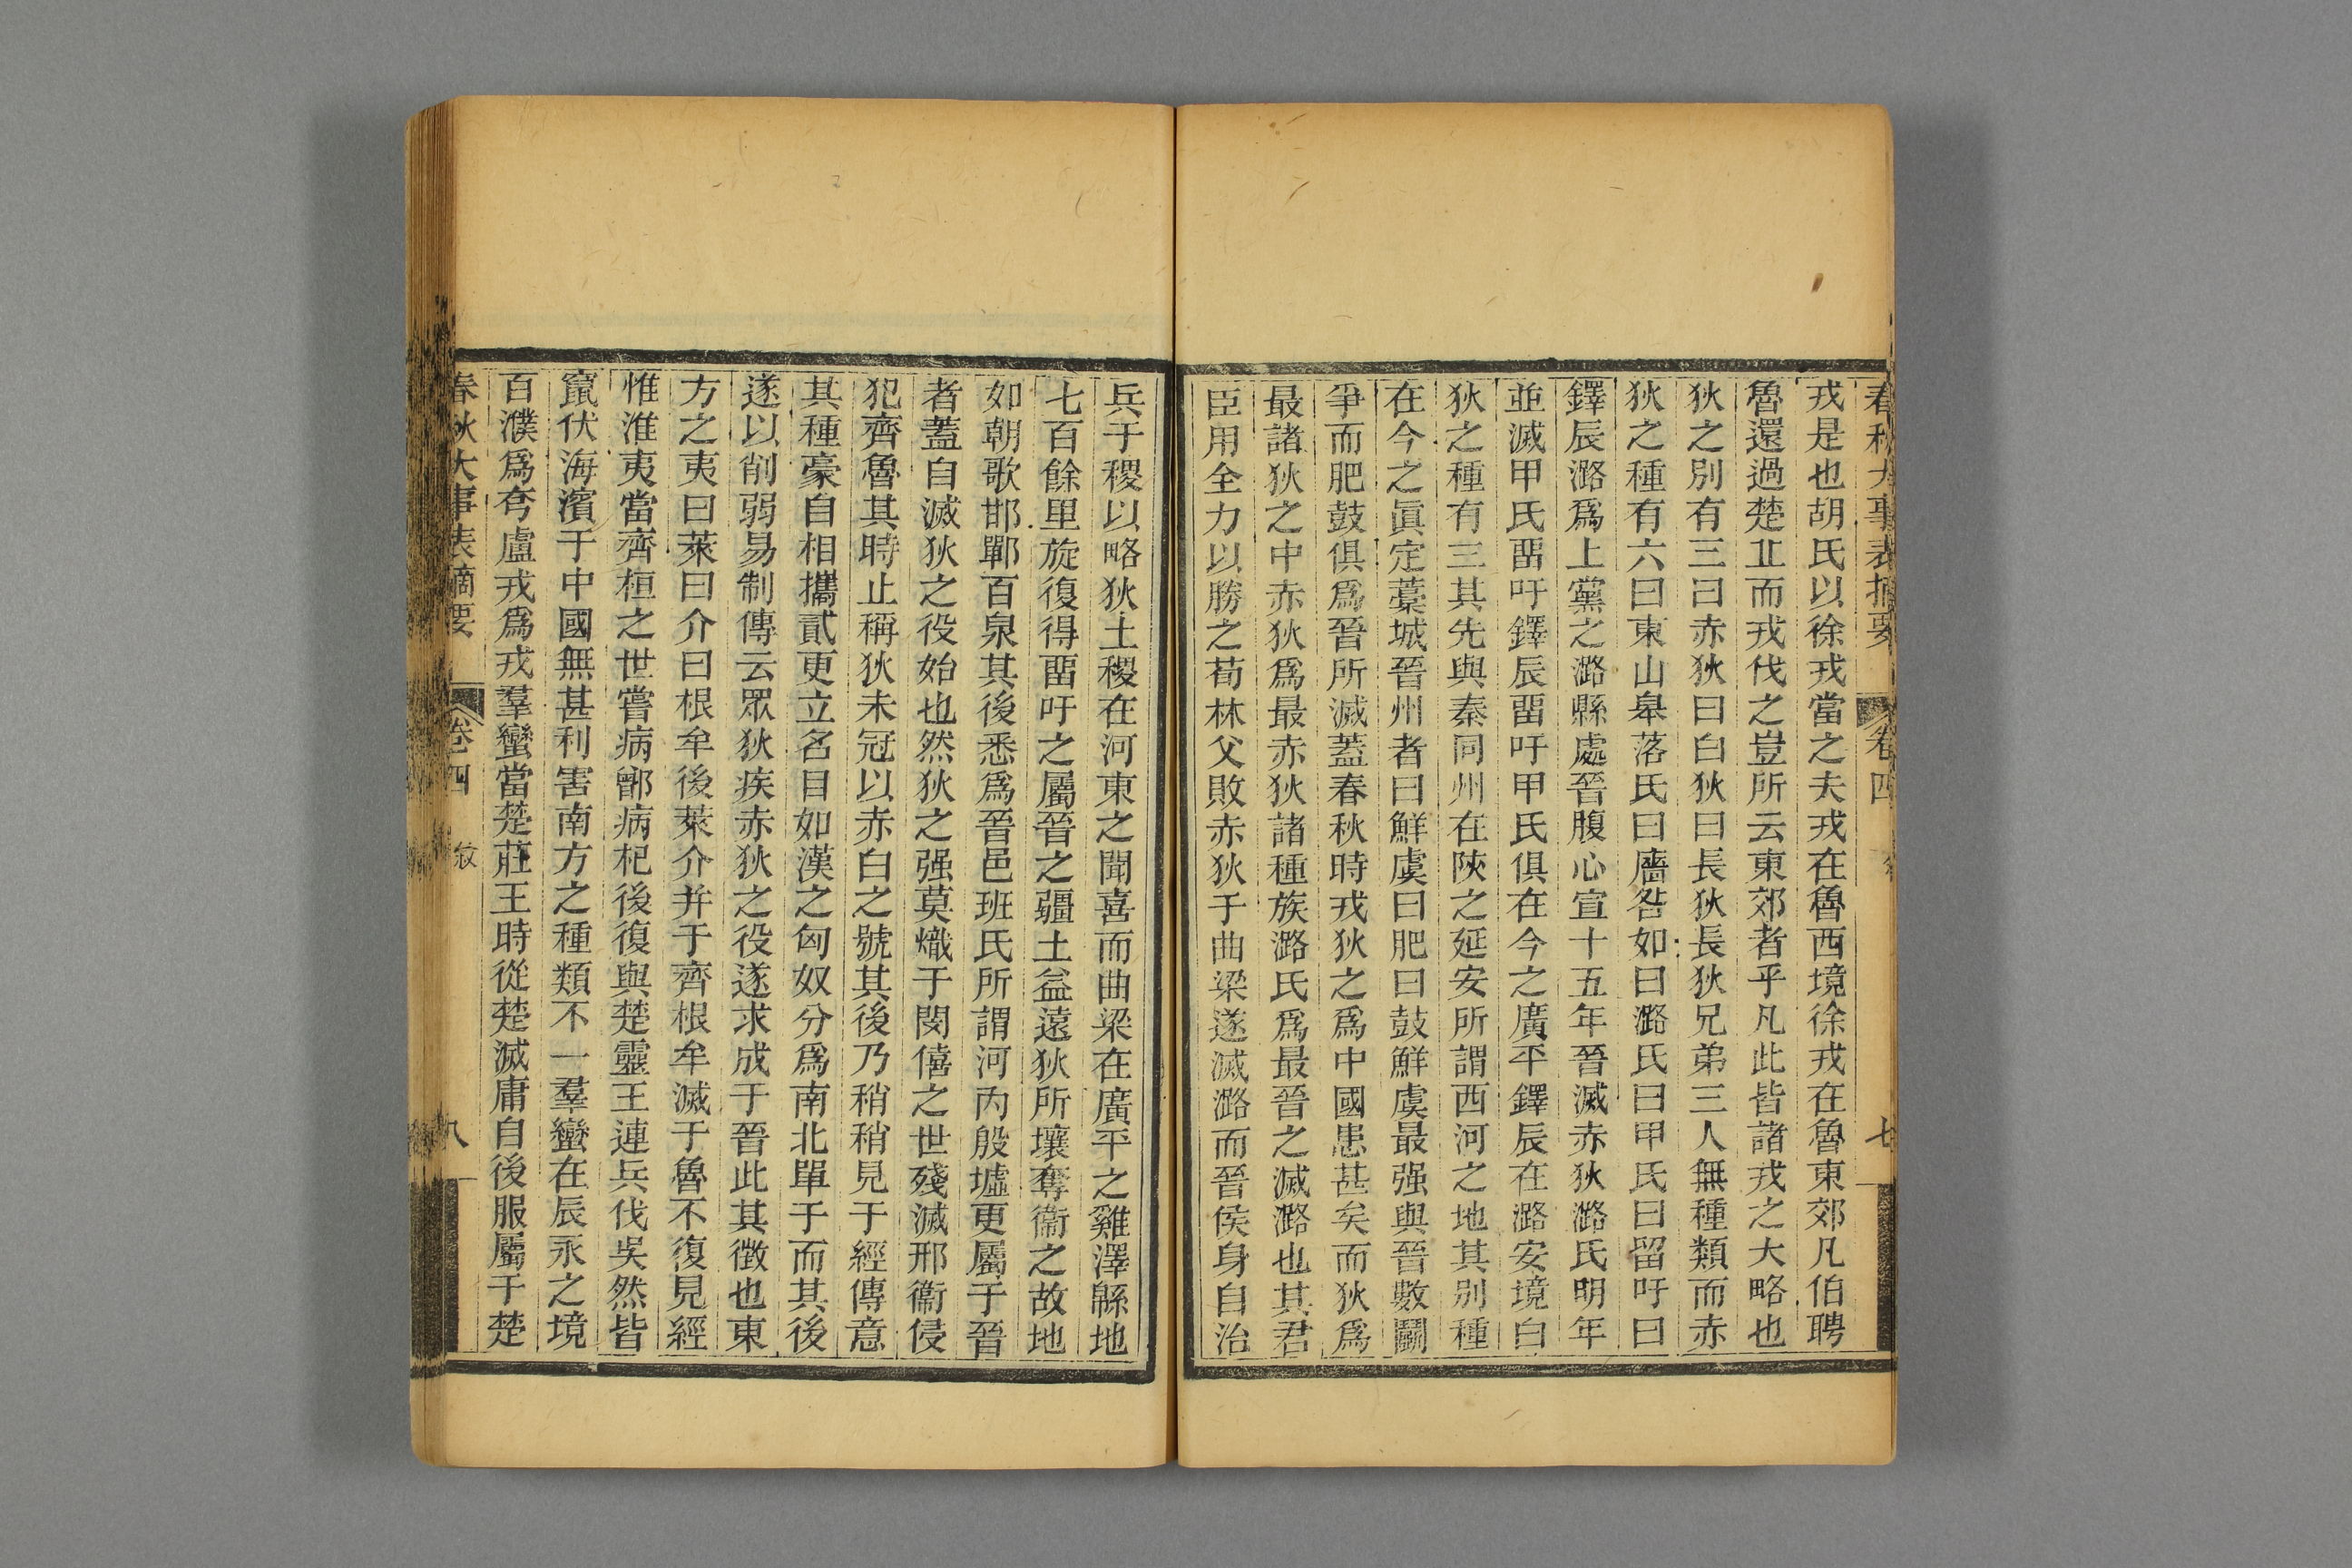 春秋大事表摘要 卷四 七
戎是也胡氏以徐戎當之夫戎在魯西境徐戎在魯東郊凡伯聘
魯還過楚丘而戎伐之豈所云東郊者乎凡此皆諸戎之大略也
狄之別有三曰赤狄曰白狄曰長狄長狄兄弟三人無種類而赤
狄之種有六曰東山皋落氏曰廧咎如曰潞氏曰甲氏曰留吁曰
鐸辰潞爲上黨之潞縣處晉腹心宣十五年晉滅赤狄潞氏明年
並滅甲氏畱吁鐸辰畱吁甲氏俱在今之廣平鐸辰在潞安境白
狄之種有三其先與秦同州在陝之延安所謂西河之地其別種
在今之眞定藁城晉州者曰鮮虞曰肥曰鼓鮮虞最强與晉數鬭
爭而肥鼓俱爲晉所滅蓋春秋時戎狄之爲中國患甚矣而狄爲
最諸狄之中赤狄爲最赤狄諸種族潞氏爲最晉之滅潞也其君
臣用全力以勝之荀林父敗赤狄于曲梁遂滅潞而晉侯身自治
兵于稷以略狄土稷在河東之聞喜而曲梁在廣平之雞澤緜地
七百餘里旋復得畱吁之屬晉之疆土益遠狄所壤奪衞之故地
如朝歌邯鄲百泉其後悉爲晉邑班氏所謂河內殷墟更屬于晉
者蓋自滅狄之役始也然狄之强莫熾于閔僖之世殘滅邢衞侵
犯齊魯其時止稱狄未冠以赤白之號其後乃稍稍見于經傳意
其種豪自相攜貳更立名目如漢之匈奴分爲南北單于而其後
遂以削弱易制傳云眾狄疾赤狄之役遂求成于晉此其徵也東
方之夷曰萊曰介曰根牟後萊介并于齊根牟滅于魯不復見經
惟淮夷當齊桓之世嘗病鄫病杞後復與楚靈王連兵伐吳然皆
竄伏海濱于中國無甚利害南方之種類不一羣蠻在辰永之境
百濮爲夸盧戎爲戎羣蠻當楚莊王時從楚滅庸自後服屬于楚
春秋大事表摘要 卷四 敘 八